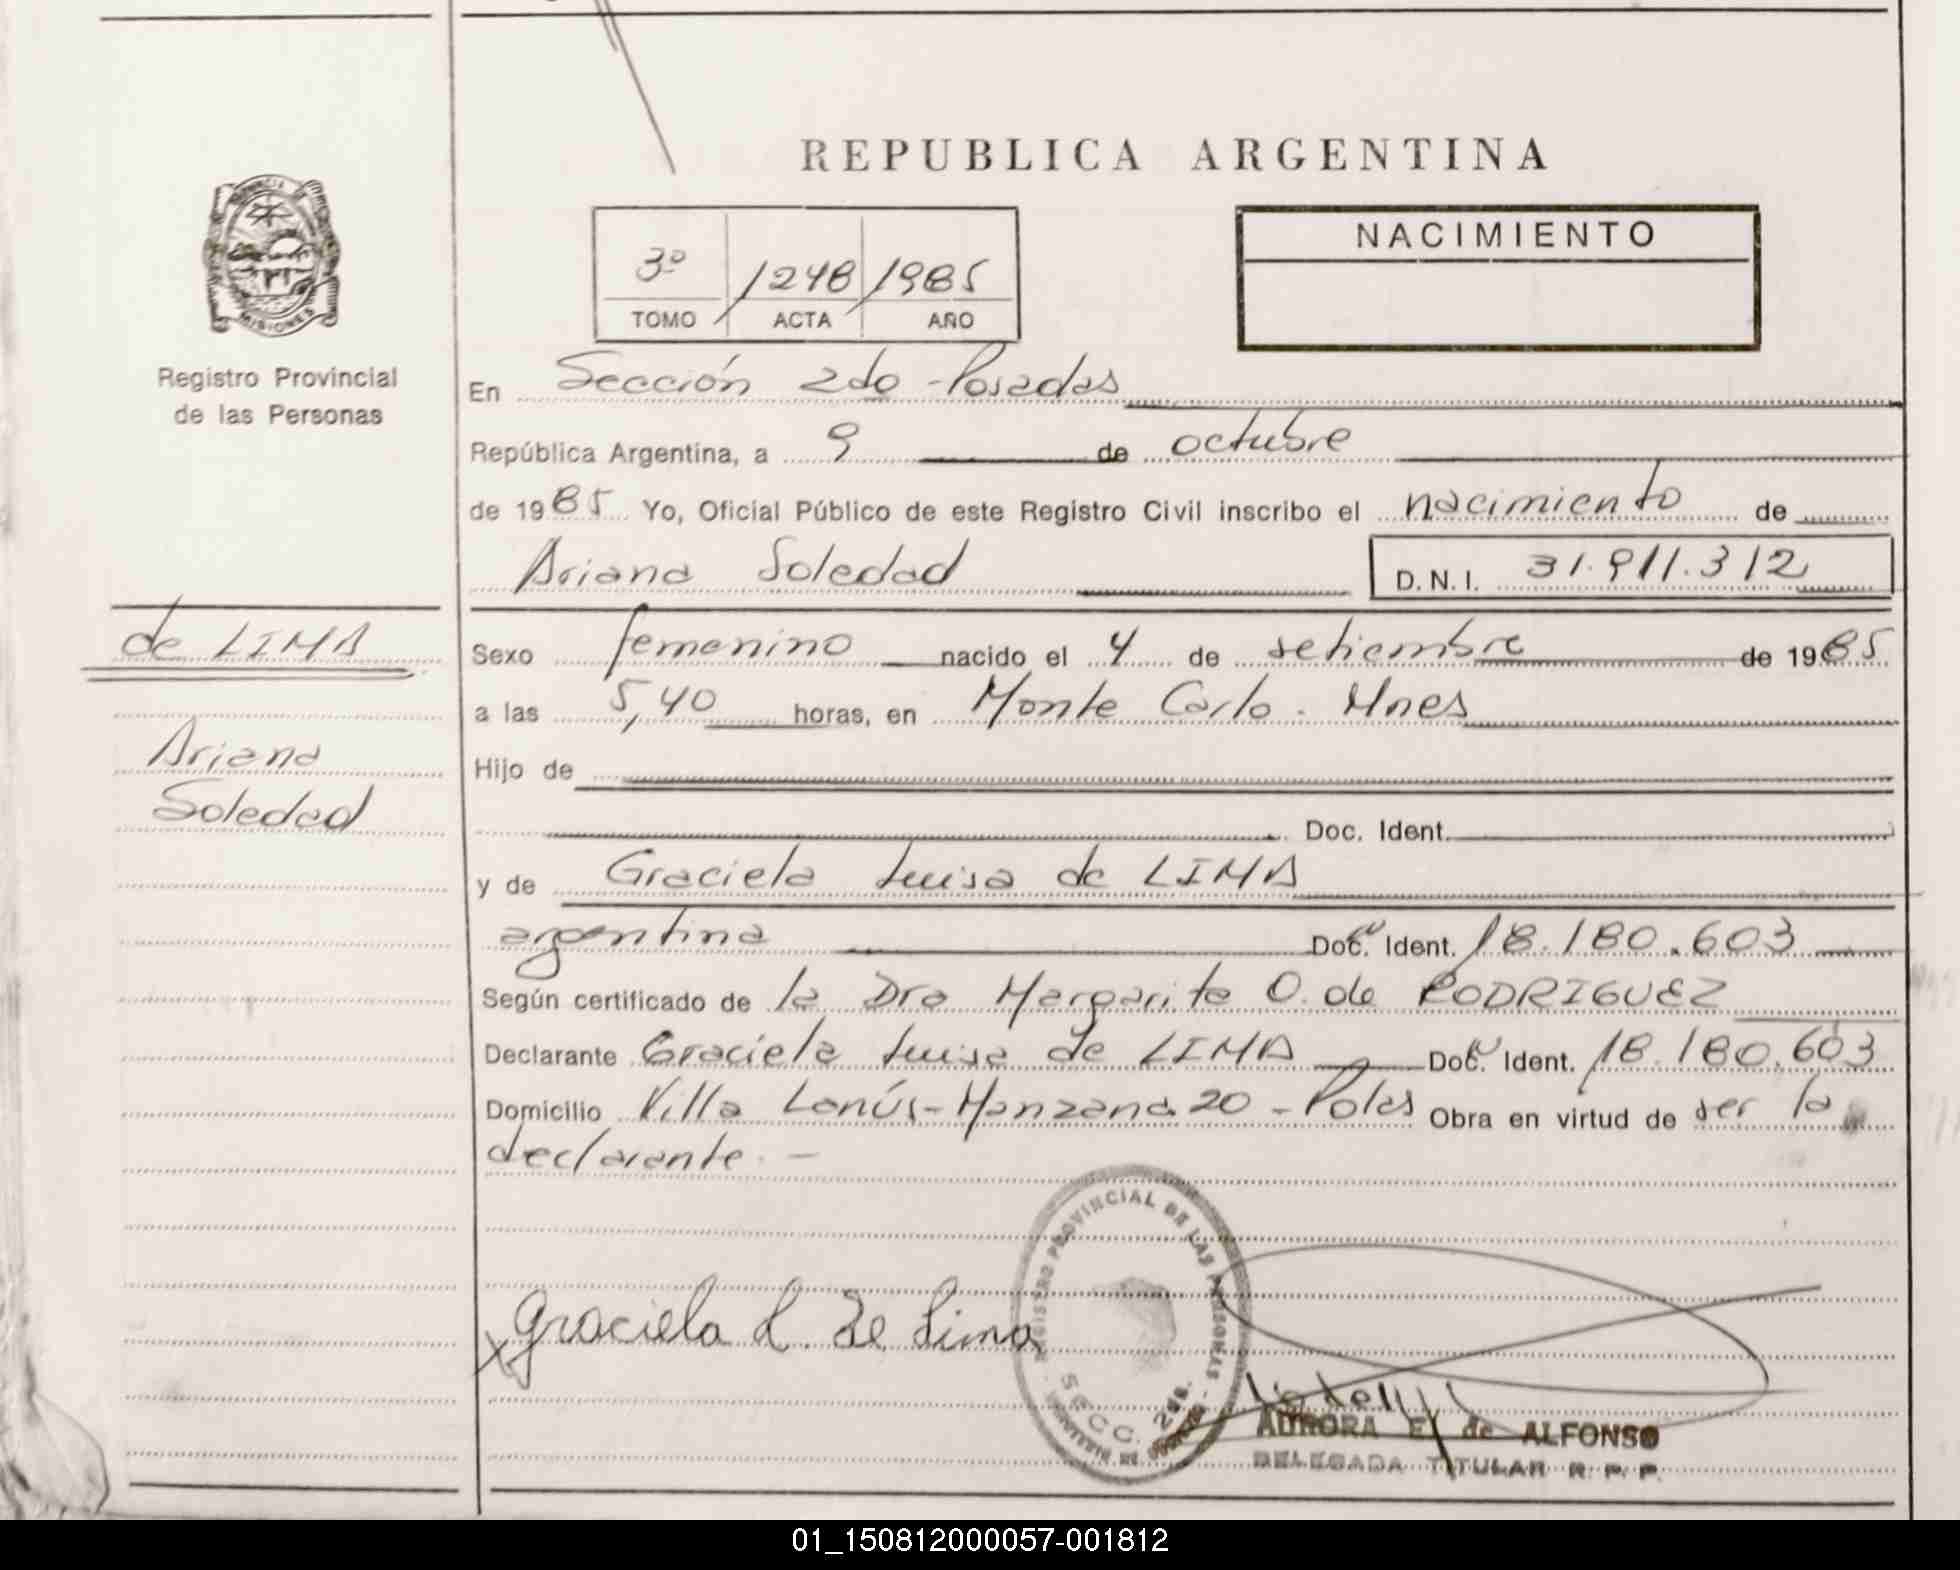 REPUBLICA ARGENTINA
NACIMIENTO
3º 1248 1985
TOMO ACTA AÑO
PROVINCIA DE MISIONES
Registro Provincial
de las Personas
En Sección 2do - Posadas
República Argentina, a 9 de octubre
de 1985 Yo, Oficial Público de este Registro Civil inscribo el nacimiento de
Ariana Soledad D.N.I. 31.911.312
de LIMA
Ariana
Soledad
Sexo femenino nacido el 4 de setiembre de 1985
a las 5,40 horas, en Monte Carlo - Mnes
Hijo de
Doc. Ident.
y de Graciela Luisa de LIMA
argentina Doc. Ident. 18.180.603
Según certificado de la Dra Margarita O. de RODRIGUEZ
Declarante Graciela Luisa de LIMA Doc. Ident. 18.180.603
Domicilio Villa Lanús - Manzana 20 - Pdas Obra en virtud de ser la
declarante. -
REGISTRO PROVINCIAL DE LAS PERSONAS
SECC. 2da.
X Graciela L. De Lima
AURORA E. de ALFONSO
DELEGADA TITULAR R. P. P.
01_150812000057-001812